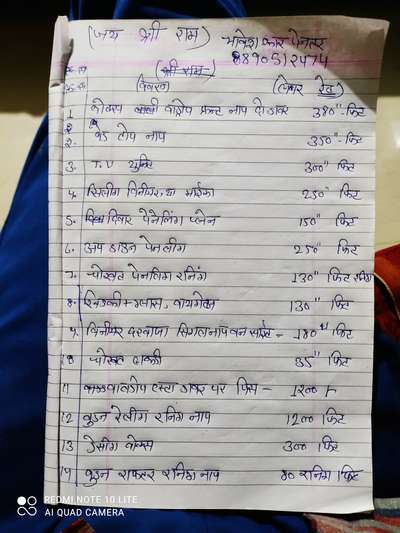 (जय श्री राम) मुकेश कार पेन्टर
8890512474
(श्री राम)
विवरन (लेबर रेट)
1 बोक्स वाली वार्डरोप फ्रन्ट नाप दो डावर 380" फिट
2. बेड टोप नाप 350" फिट
3. T.V युनिट 300" फिट
4. सिलीग विनीयर, या माईका 250" फिट
5. दिवार पेनेलिंग प्लेन 150" फिट
6. अप डाउन पेनलीग 250" फिट
7. चोखट पेनलिंग रनिंग 130" फिट रनिंग
8. खिडकी + ग्लास, 130" फिट
9. विनीयर दरवाजा सिंगल नाप वन साईट - 180" फिट
10 चोखट 85" फिट
11 वार्डरोप एस्टा डावर पर पिस - 1200 /-
12 वुडन रेलीग रनिंग नाप 1200 फिट
13 ड्रेसीग बोक्स 300 फिट
14 वुडन राफ्टर रनिंग नाप 80 रनिंग फिट
REDMI NOTE 10 LITE
AI QUAD CAMERA